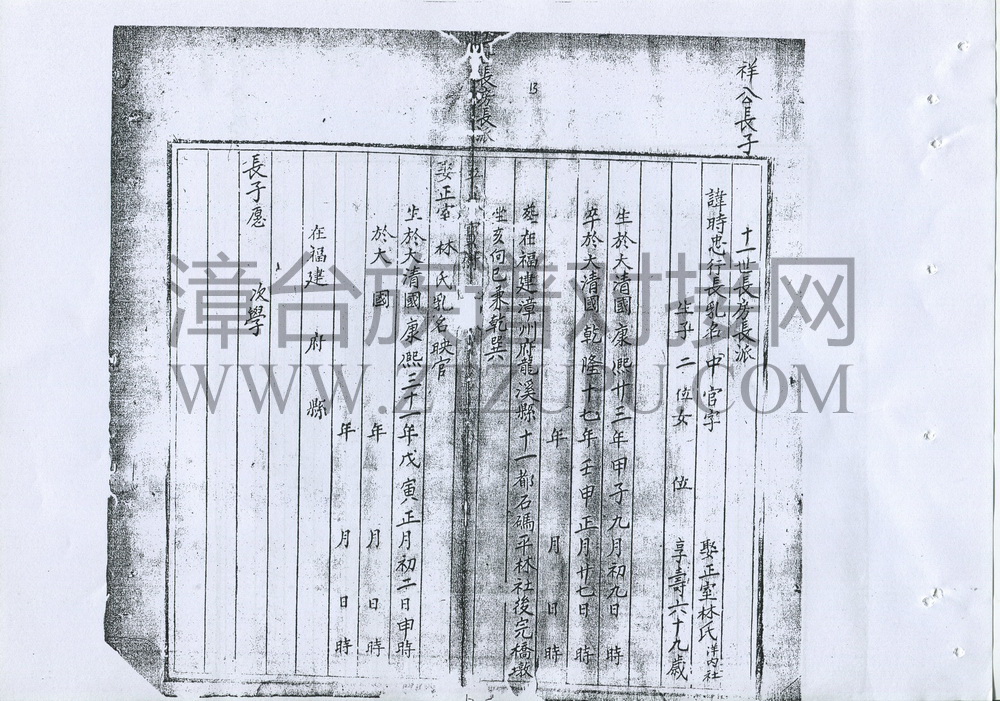 祥公長子
十一世長房長派
諱時忠行長乳名中官字 娶正室林氏洋内社
生子二位女 位 享壽六十九歲
生於大清國康熙廿三年甲子九月初九日 時
卒於大清國乾隆十七年壬申正月廿七日 時
年 月 日 時
葬在福建漳州府龍溪縣十一都石碼平林社後完橋墩
坐亥向巳兼乾巽
13
長房長派
娶正室 林氏乳名映官
生於大清國康熙三十一年戊寅正月初二日申時
於大 國 年 月 日 時
在福建 府 縣 年 月 日 時
長子愿 次學
漳台族谱对接网
WWW.ZTZUPU.COM